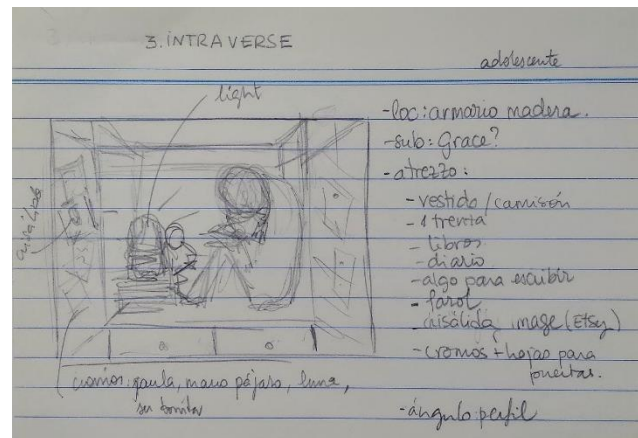 3. INTRAVERSE
adolescente
light
-loc: armario madera.
-sub: Grace?
-atrezzo:
-vestido/camisón
-1 trenza
-libros
-diario
-algo para escribir
-farol
-crisálida image (Etsy)
-cromos + hojas para puertas.
crisálida
cromos: jaula, mano pájaro, luna,
-ángulo perfil